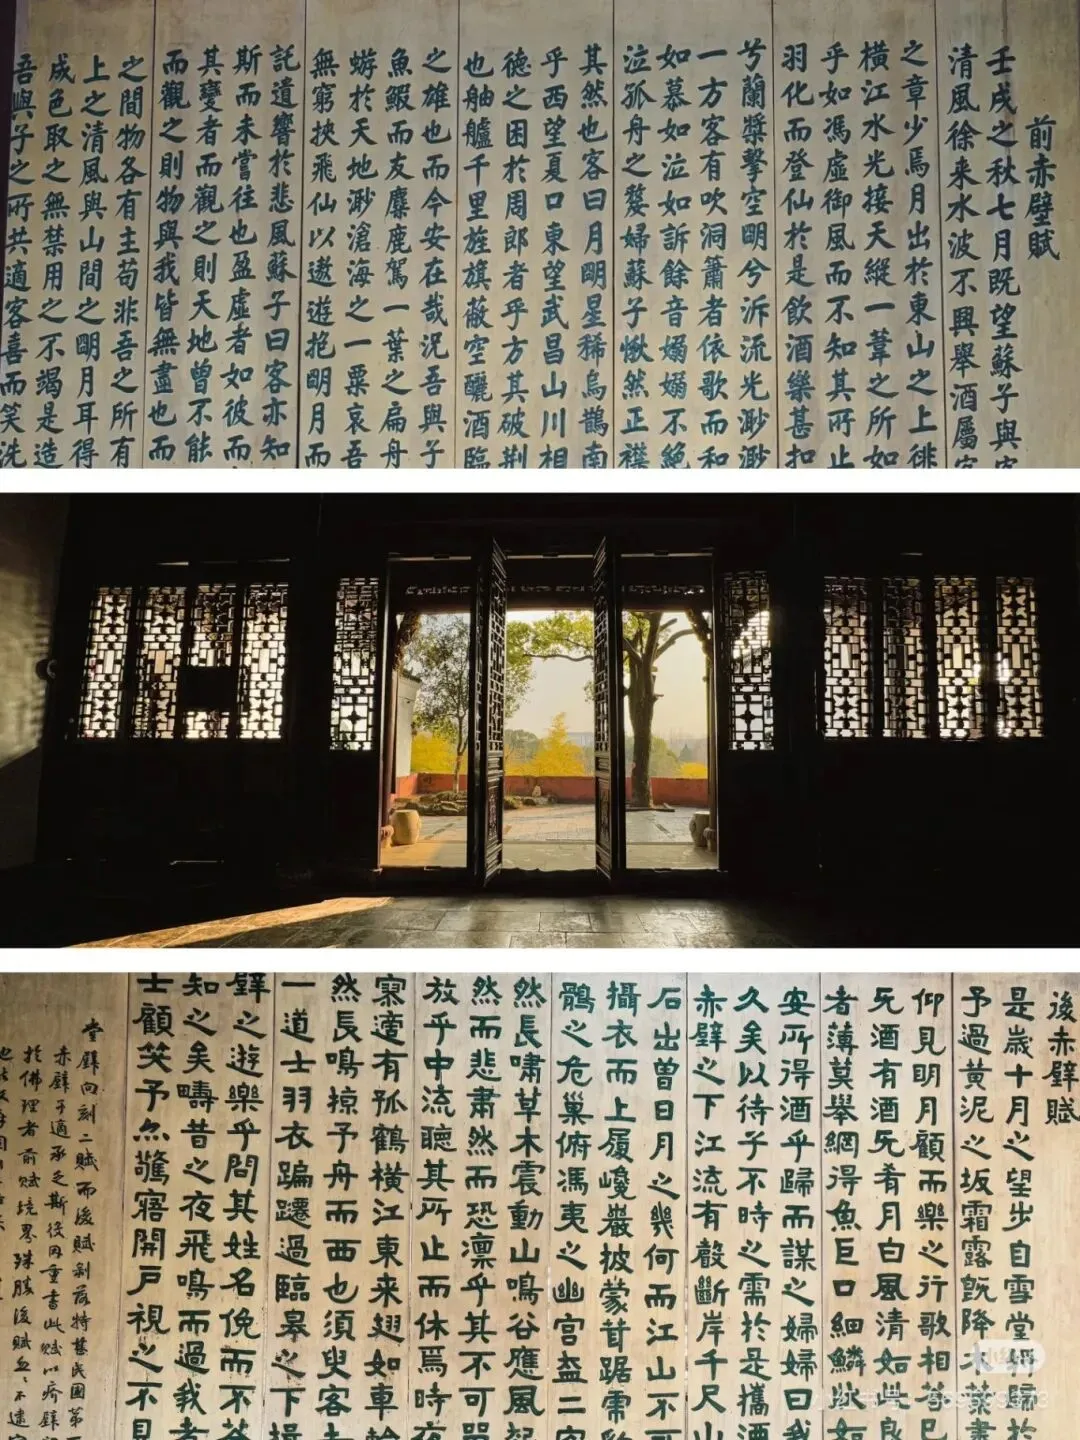 前赤壁賦
壬戌之秋七月既望蘇子與客
清風徐来水波不興舉酒屬客
之章少焉月出於東山之上徘
橫江水光接天縱一葦之所如
乎如馮虛御風而不知其所止
羽化而登仙於是飲酒樂甚扣
兮蘭槳擊空明兮泝流光渺渺
一方客有吹洞簫者依歌而和
如慕如泣如訴餘音嫋嫋不絕
泣孤舟之嫠婦蘇子愀然正襟
其然也客曰月明星稀烏鵲南
乎西望夏口東望武昌山川相
德之困於周郎者乎方其破荊
也舳艫千里旌旗蔽空釃酒臨
之雄也而今安在哉況吾與子
魚鰕而友麋鹿駕一葉之扁舟
蜉於天地渺滄海之一粟哀吾
無窮挾飛仙以遨遊抱明月而
託遺響於悲風蘇子曰客亦知
斯而未嘗往也盈虛者如彼而
其變者而觀之則天地曾不能
而觀之則物與我皆無盡也而
之間物各有主苟非吾之所有
上之清風與山間之明月耳得
成色取之無禁用之不竭是造
吾與子之所共適客喜而笑洗
後赤壁賦
是歲十月之望步自雪堂將歸於
予過黃泥之坂霜露既降木葉盡
仰見明月顧而樂之行歌相答已
旡酒有酒旡肴月白風清如此良
者薄莫舉網得魚巨口細鱗狀如
安所得酒乎歸而謀之婦婦曰我
久矣以待子不時之需於是攜酒
赤壁之下江流有聲斷岸千尺山
石出曾日月之幾何而江山不可
攝衣而上履巉巖披蒙茸踞虎豹
鶻之危巢俯馮夷之幽宮盖二客
然長嘯草木震動山鳴谷應風起
然而悲肅然而恐凜乎其不可留
放乎中流聽其所止而休焉時夜
寥適有孤鶴橫江東来翅如車輪
然長鳴掠予舟而西也須臾客去
一道士羽衣蹁躚過臨皋之下揖
壁之遊樂乎問其姓名俛而不答
知之矣疇昔之夜飛鳴而過我者
士顧笑予亦驚寤開戶視之不見
堂壁向刻二賦而後賦剝落特甚民國第
赤壁子適承乏斯役因重書此賦以
於佛理者前賦境界殊勝後賦
小红书号